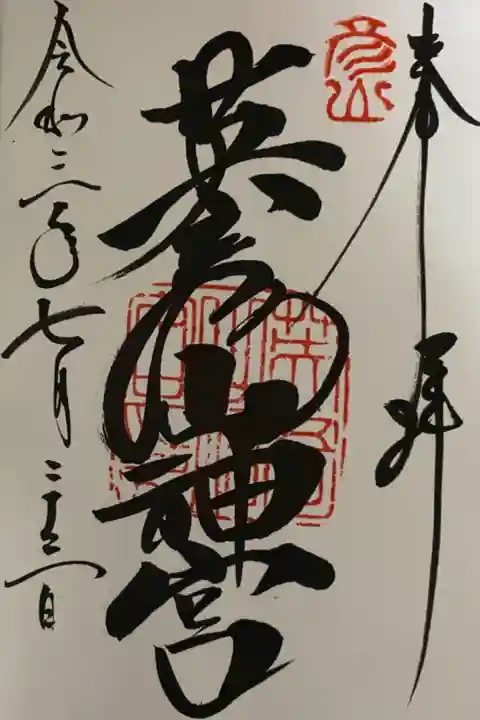 奉拝
彦山
英彦山神宮
令和三年七月二十三日